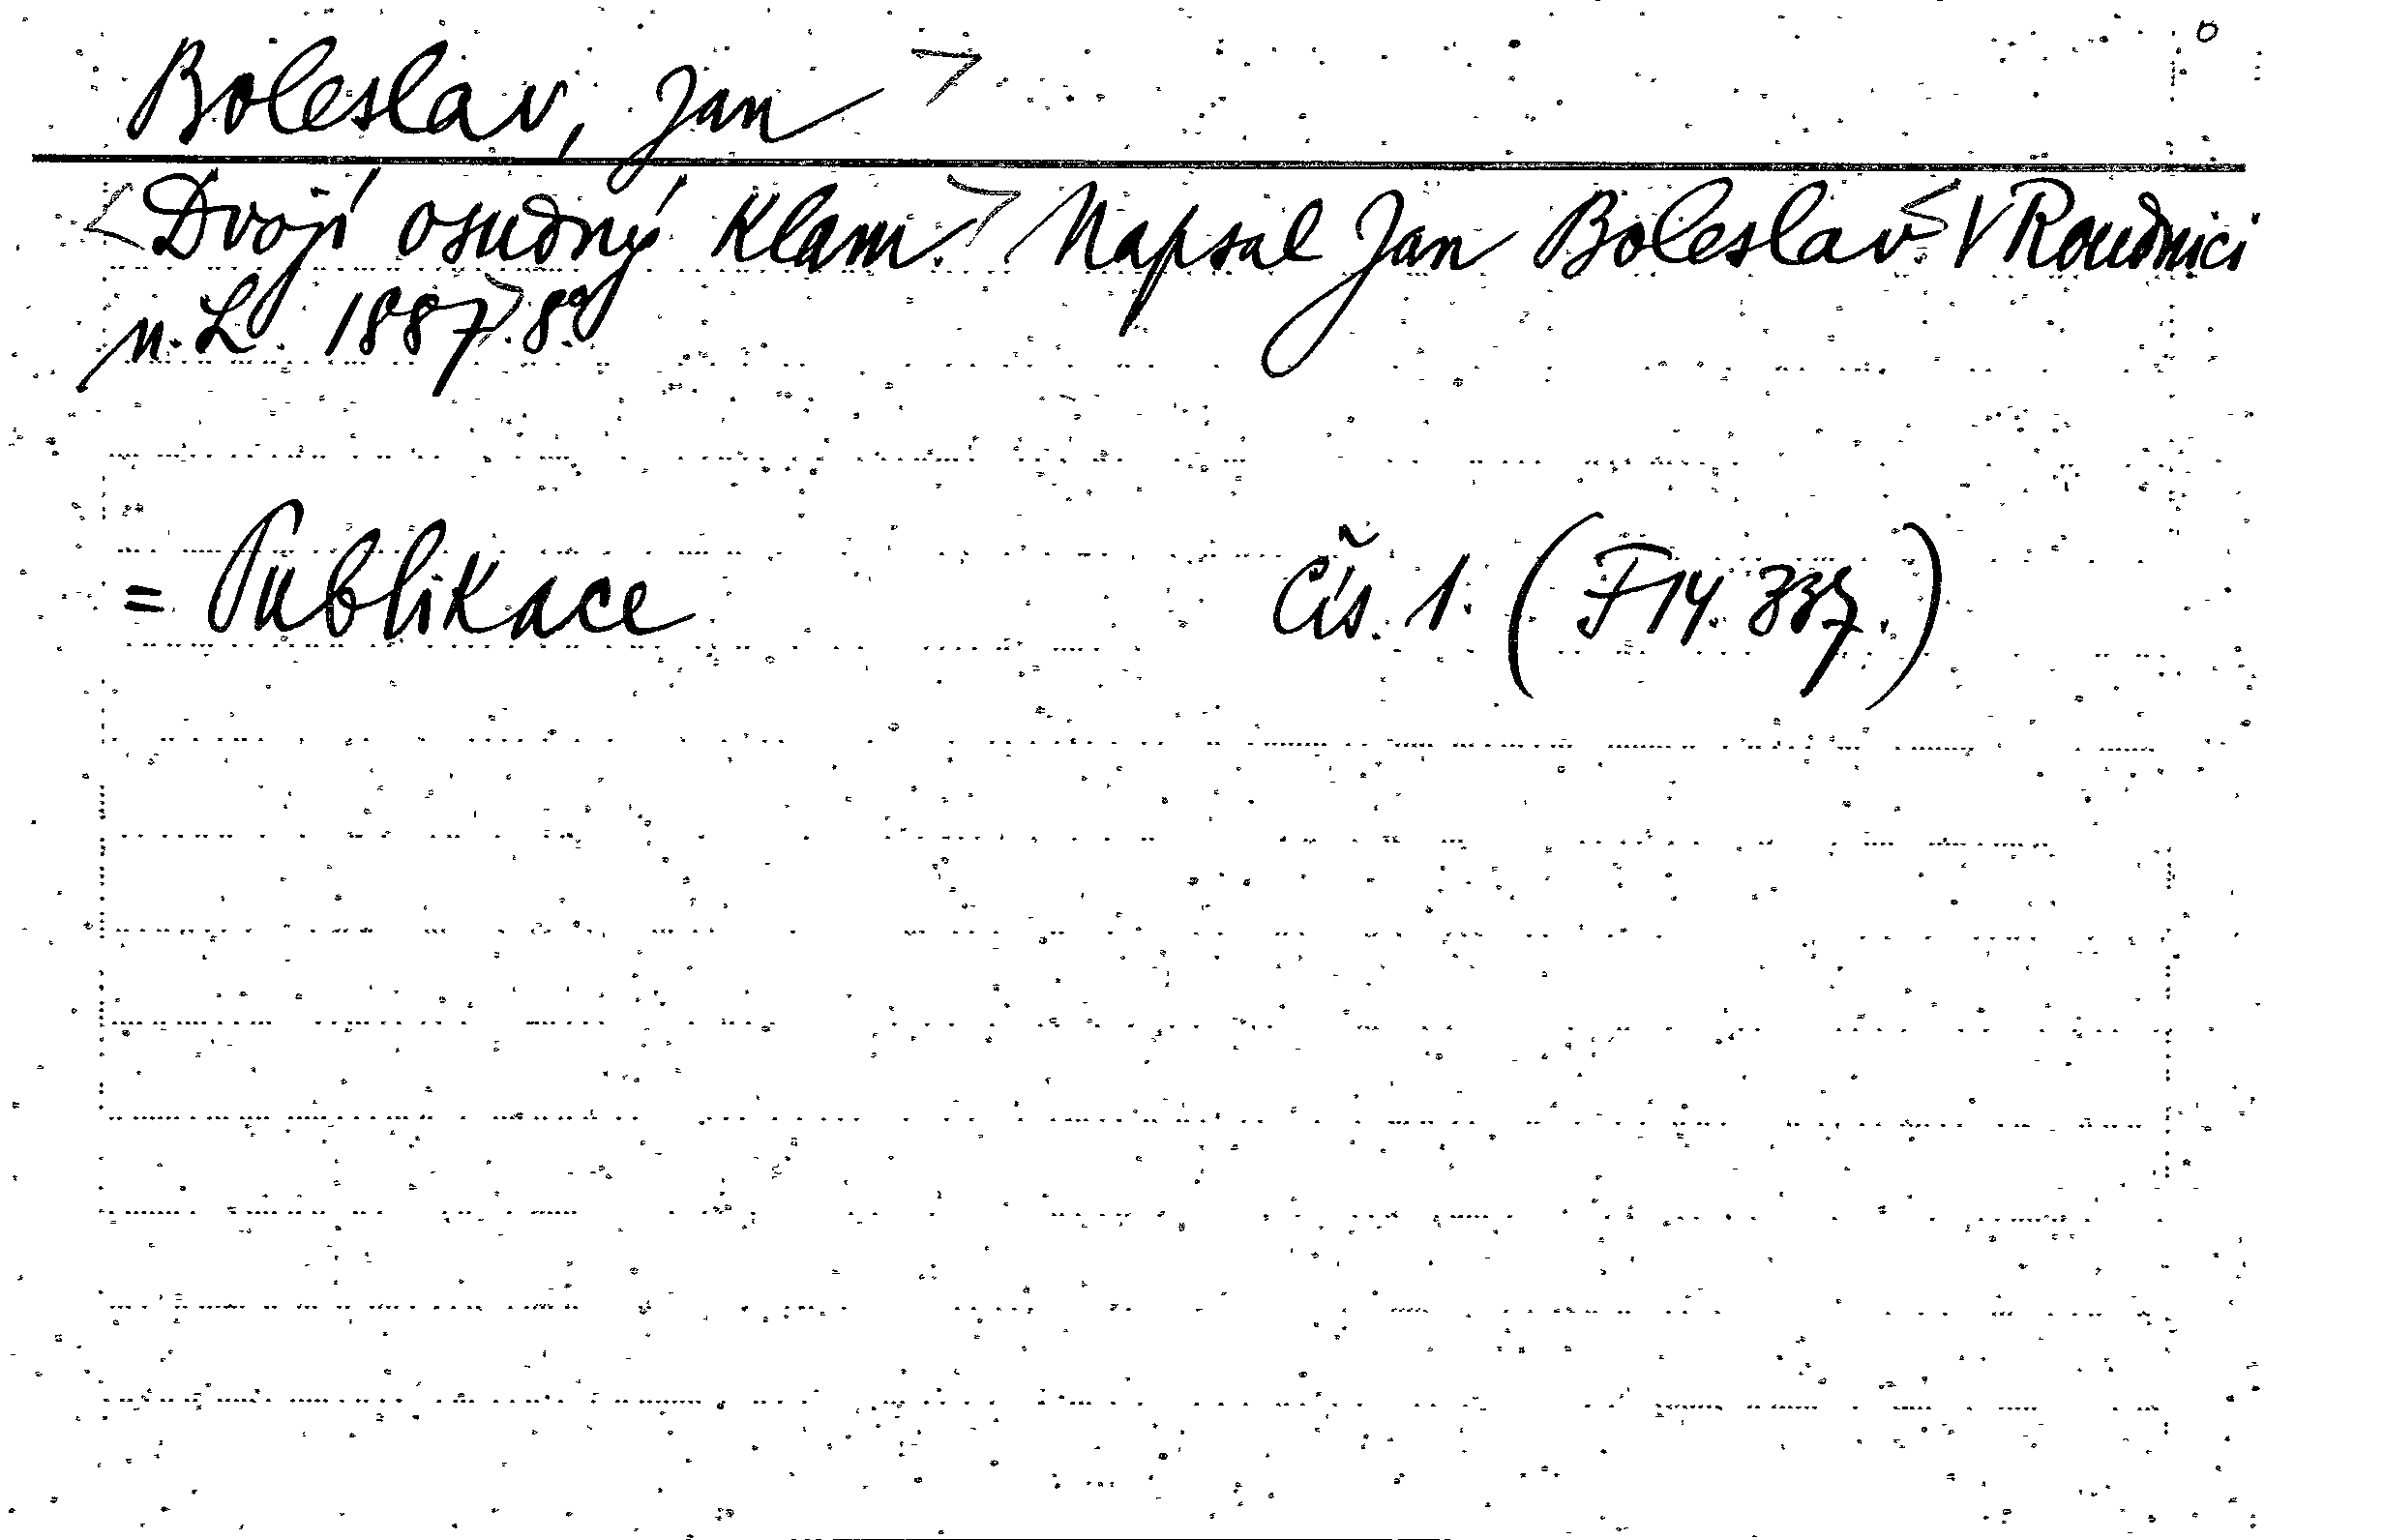 Boleslav, Jan >
<Dvojí osudný klam.> Napsal Jan Boleslav.< V Roudnici
n. L. 1887.> 8°.
= Publikace Čís. 1. (F 14. 337.)